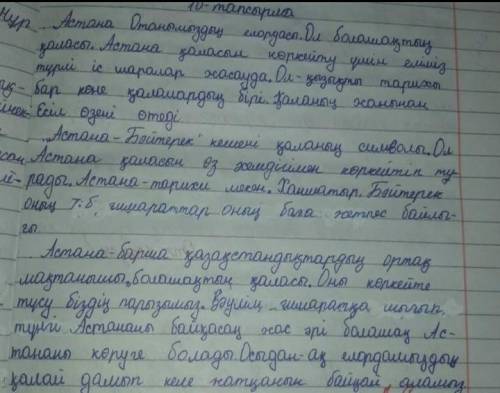 10-тапсырма
Астана Отанымыздың елордасы. Ол болашақтың
қаласы. Астана қаласын көркейту үшін еліміз
түрлі іс шаралар жасауда. Ол-қызықты тарихы
бар көне қалалардың бірі. Қаланың жанынан
Есіл өзені өтеді.
"Астана-Бәйтерек" кешені қаланың символы. Ол
Астана қаласын өз әсемдігімен көркейтіп ту-
рады. Астана-тарихи мекен. Ханшатыр. Бәйтерек
оның т.б. ғимараттар оның баға жетпес байлы-
ғы.
Астана-барша қазақстандықтардың ортақ
мақтанышы, болашақтың қаласы. Оны көркейте
түсу біздің парызымыз. Зәулім ғимаратқа шығып,
түнгі Астананы байқасаң жас әрі болашақ Ас-
тананы көруге болады. Осыдан-ақ елордамыздың
қалай дамып келе жатқанын байқай аламыз